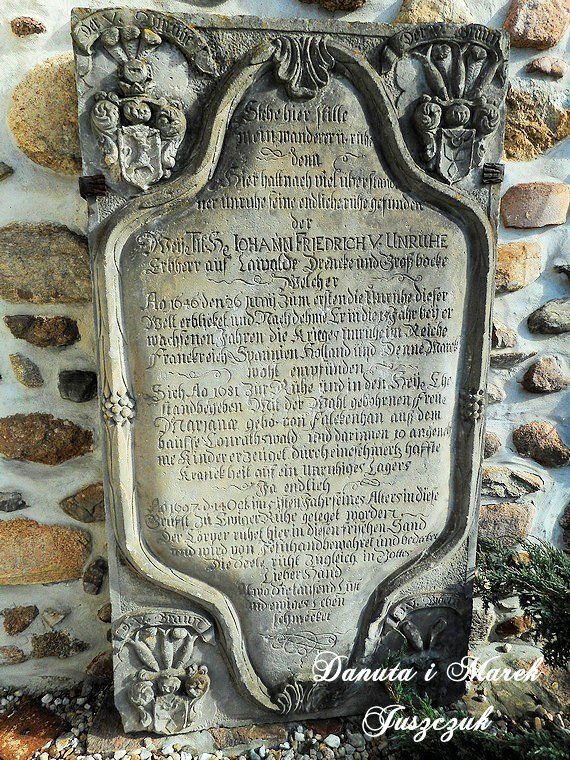 Der V. Unruhe
Der V. Braun
Stehe hier stille
mein wanderer u. ruhe
denn
Hier hatt nach viel überstande
ner Unruhe seine endliche ruhe gefunden
der
IOHANN FRIEDRICH V. UNRUHE
Erbherr auf Lawalde Drencke und Groß
Welcher
Ao 1646 den 26 Zum ersten die Unruhe dieser
Welt erblicket und Nach dehme Er in die 15 Jahr bey er
wachsenen Jahren die Krieges unruhe im Reiche
Franckreich Spannien Holland und Denne Marck
wohl empfunden
Sich Ao 1681 Zur Ruhe und in den Heil. Ehe
stand begeben Mit der Wohl gebohrnen
Mariana gebo von Falckenhan auß dem
hausse Conrathswald und darinnen 10 angeneh
me Kinder erzeuget durch eine schmertz haffte
Kranckheit auf ein Unruhiges Lager
Ja endlich
Ao 1697 d. 14 Oct. im 51 Jahr seines Alters in diese
Grufft Zu Ewiger Ruhe geleget worden
Der Cörper ruhet hier in diesen frischen Sand
und wird von Feindhand bewahret und
Die Seele ruht Zugleich in Gottes
Lieber Hand
Alwo die tausend Lust
und ewiges Leben
schmecket
D. V. Braun
Danuta i Marek
Juszczuk